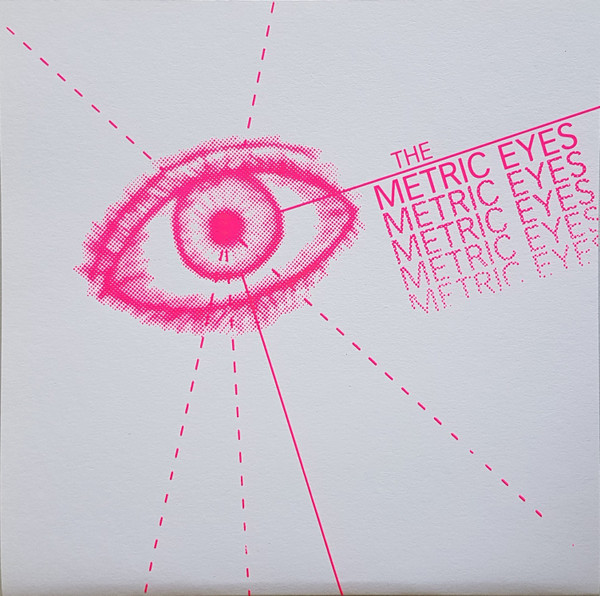 THE
METRIC EYES
METRIC EYES
METRIC EYES
METRIC EYES
METRIC EYES